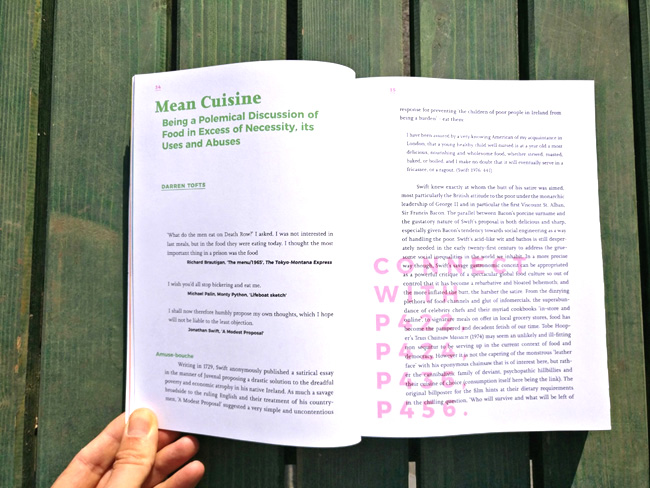 24
Mean Cuisine
Being a Polemical Discussion of
Food in Excess of Necessity, its
Uses and Abuses
DARREN TOFTE
'What do the men eat on Death Row?' I asked. I was not interested in
last meals, but in the food they were eating today. I thought the most
important thing in a prison was the food
Richard Brautigan, 'The menu/1965', The Tokyo-Montana Express
I wish you'd all stop bickering and eat me.
Michael Palin, Monty Python, 'Lifeboat sketch'
I shall now therefore humbly propose my own thoughts, which I hope
will not be liable to the least objection.
Jonathan Swift, 'A Modest Proposal'
Amuse-bouche
Writing in 1729, Swift anonymously published a satirical essay
in the manner of Juvenal proposing a drastic solution to the dreadful
poverty and economic atrophy in his native Ireland. As much a savage
broadside to the ruling English and their treatment of his country-
men, 'A Modest Proposal' suggested a very simple and uncontentious
response for preventing 'the children of poor people in Ireland from
being a burden' : eat them
I have been assured by a very knowing American of my acquaintance in
London, that a young healthy child well nursed is at a year old a most
delicious, nourishing and wholesome food, whether stewed, roasted,
baked, or boiled; and I make no doubt that it will equally serve in a
fricassee, or a ragout. (Swift 1976:
Swift knew exactly at whom the butt of his satire was aimed,
most particularly the British attitude to the poor under the monarchic
leadership of George II and in particular the first Viscount St. Alban,
Sir Francis Bacon. The parallel between Bacon's porcine surname and
the gustatory nature of Swift's proposal is both delicious and sharp,
especially given Bacon's tendency towards social engineering as a way
of handling the poor. Swift's acid-like wit and bathos is still desper-
ately needed in the early twenty-first century to address the grue-
some social inequalities in the world we inhabit. In a more precise
way though, Swift's savage gastronomic conceit can be appropriated
as a powerful critique of a spectacular global food culture so out of
control that it has become a rebarbative and bloated behemoth; and
the more inflated the butt, the harsher the satire. From the flurrying
plethora of food channels and glut of infomercials, the superabun-
dance of celebrity chefs and their myriad cookbooks 'in-store and
online', to signature meals on offer in local grocery stores, food has
become the pampered and decadent fetish of our time. Tobe Hoop-
er's Texas Chainsaw Massacre (1974) may seem an unlikely and ill-fitting
separate to be serving up in the current context of food and
democracy. However it is not the capering of the monstrous 'leather
face' with his eponymous chainsaw that is of interest here, but rath-
er the cannibalistic family of deviant, psychopathic hillbillies and
their cuisine of choice (consumption itself here being the link). The
original billposter for the film hints at their dietary requirements
in the chilling question, 'Who will survive and what will be left of
CONNECT
WITH
P456.